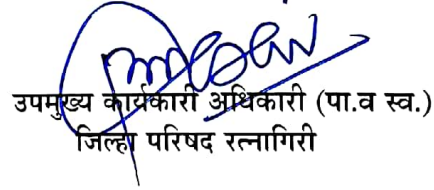 उपमुख्य कार्यकारी अधिकारी (पा.व स्व.)
जिल्हा परिषद रत्नागिरी